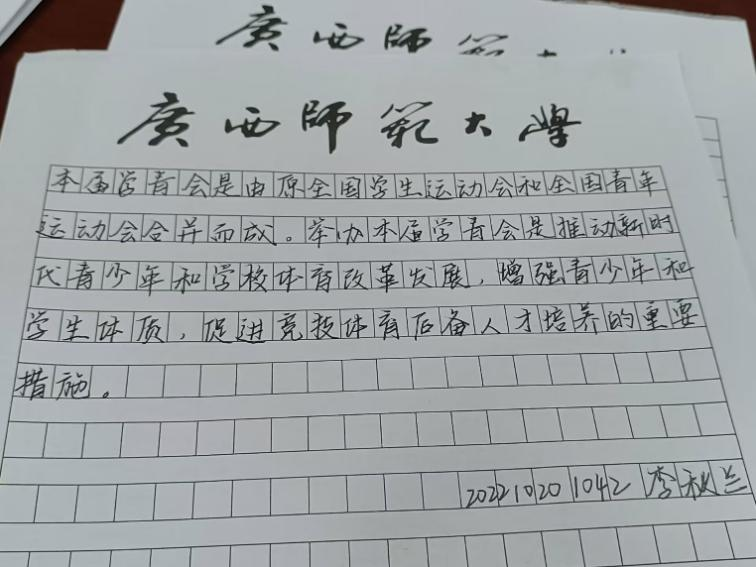 廣西師範大
廣西師範大學
本届学青会是由原全国学生运动会和全国青年
运动会合并而成。举办本届学青会是推动新时
代青少年和学校体育改革发展，增强青少年和
学生体质，促进竞技体育后备人才培养的重要
措施。
202210201042 李秋兰